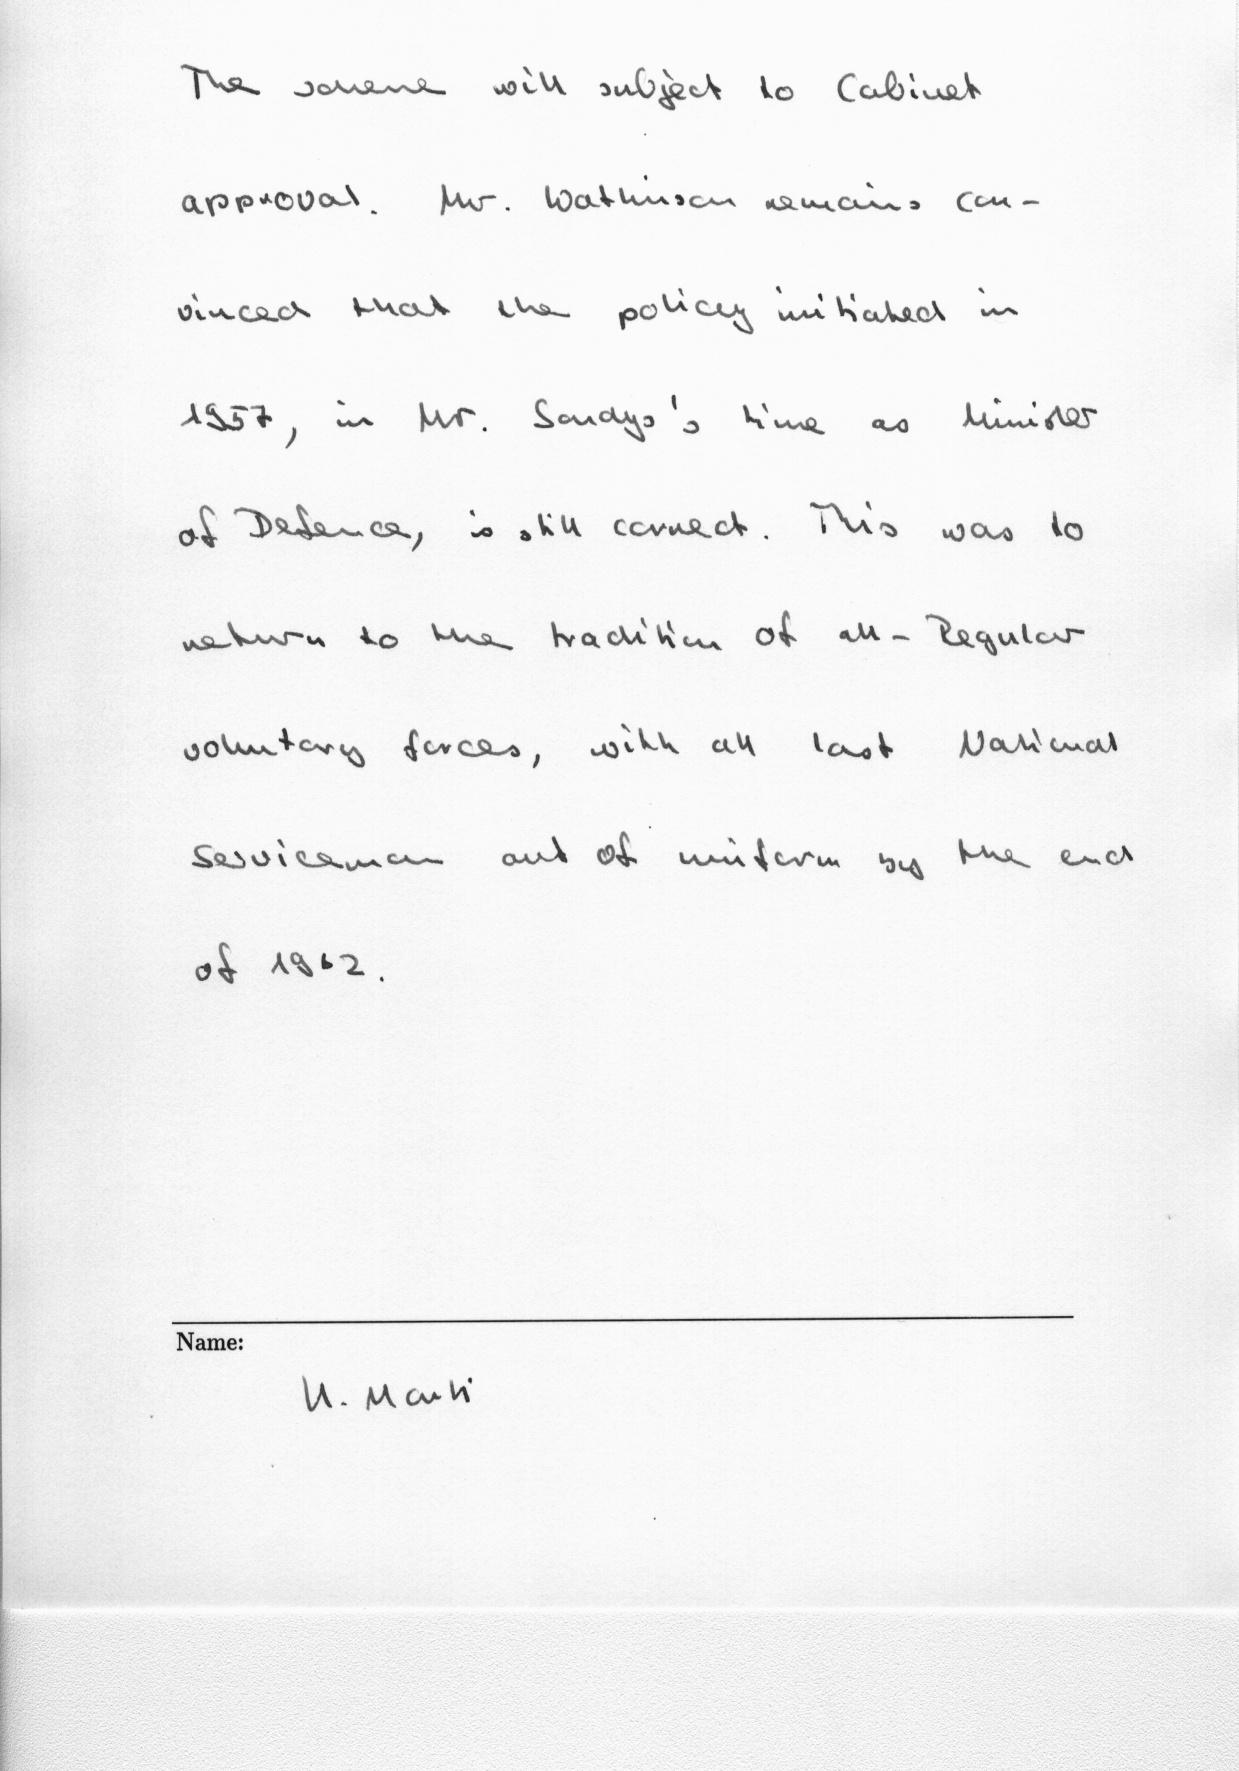 The scheme will subject to Cabinet
approval. Mr. Watkinson remains con-
vinced that the policy initiated in
1957, in Mr. Sandys's time as Minister
of Defence, is still correct. This was to
return to the tradition of all-Regular
voluntary forces, with all last National
Serviceman out of uniform by the end
of 1962.
Name:
U. Marti